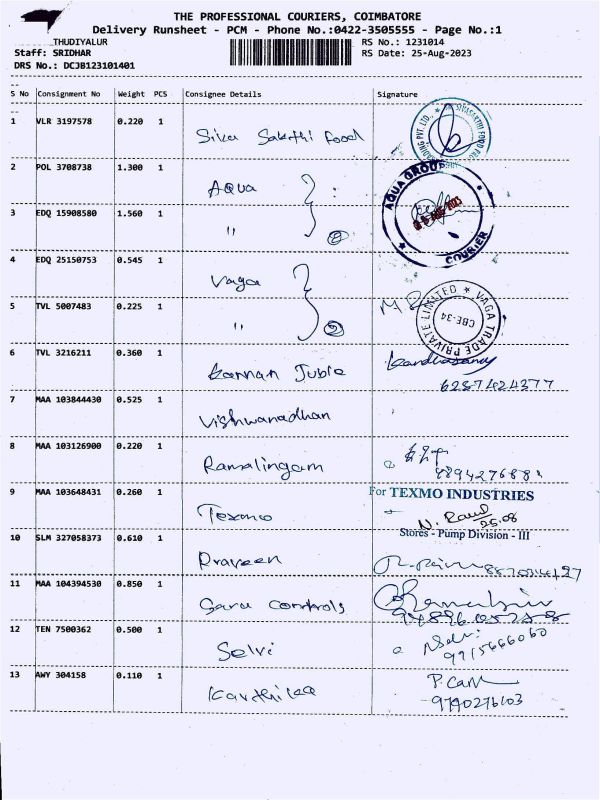 THE PROFESSIONAL COURIERS, COIMBATORE
Delivery Runsheet - PCM - Phone No.:0422-3505555 - Page No.:1
THUDIYALUR
RS No.: 1231014
Staff: SRIDHAR
RS Date: 25-Aug-2023
DRS No.: DCJB123101401
S No Consignment No Weight PCS Consignee Details Signature
1 VLR 3197578 0.220 1 Siva Sakthi Food
2 POL 3708738 1.300 1 Aqua
AQUA GROUP
COURIER
3 EDQ 15908580 1.560 1 "
2
4 EDQ 25150753 0.545 1 Vaga
VAGA TRADE PRIVATE LIMITED
CBE-34
5 TVL 5007483 0.225 1 "
2
6 TVL 3216211 0.360 1 Kannan Juble
6287424377
7 MAA 103844430 0.525 1 Vishwanadhan
8 MAA 103126900 0.220 1 Ramalingam
9 MAA 103648431 0.260 1 Texmo
For TEXMO INDUSTRIES
25.08
Stores - Pump Division - III
10 SLM 327058373 0.610 1 Praveen
11 MAA 104394530 0.850 1 Guru controls
12 TEN 7500362 0.500 1 Selvi
Selvi
9915666060
13 AWY 304158 0.110 1 Karthika
9790276103